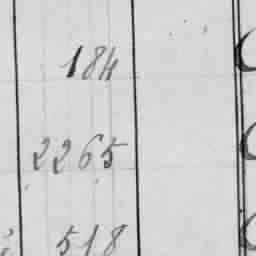 184
2265
518